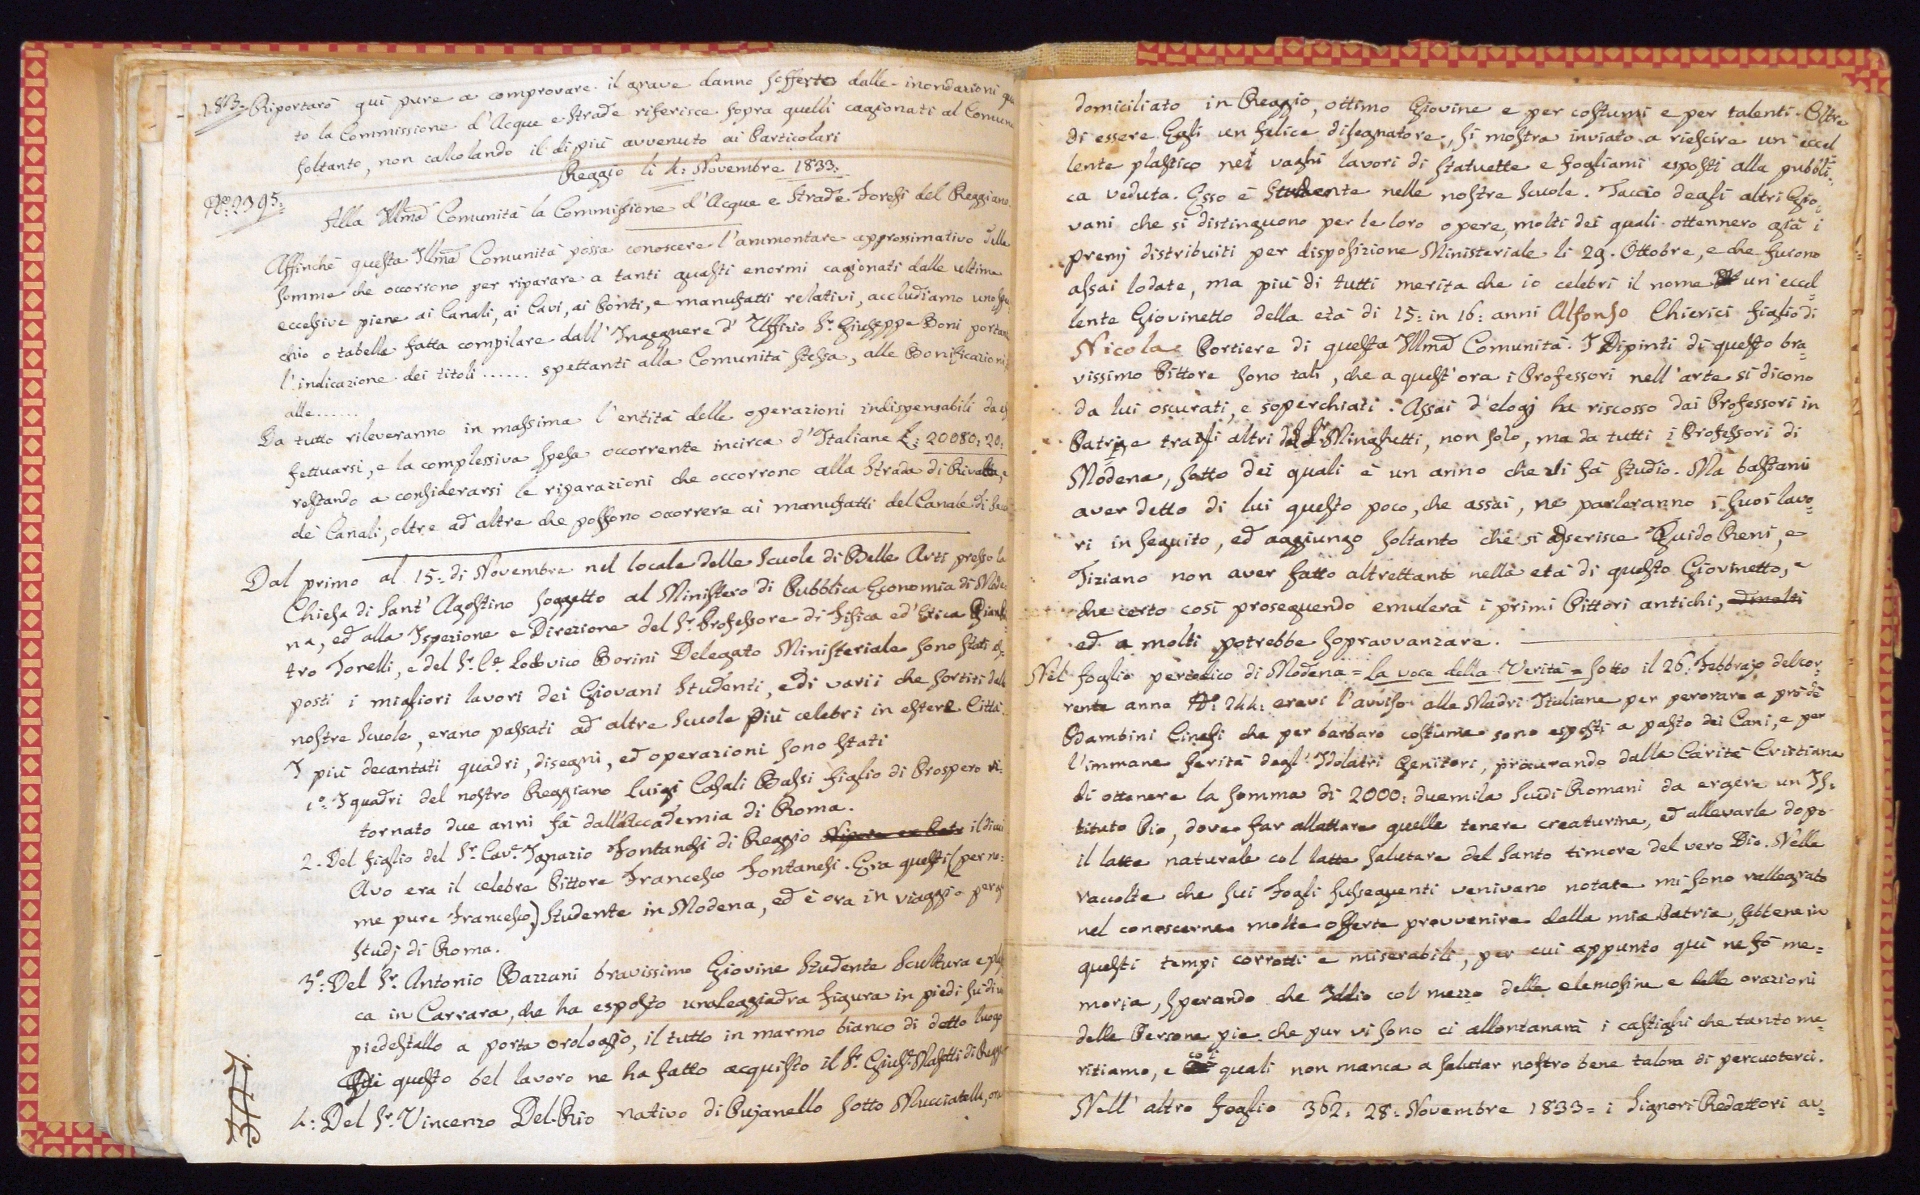 1833. Riportarò quì pure a comprovare il grave danno sofferto dalle inondazioni
to la Commissione d'Acque e Strade riferisce sopra quelli cagionati al Comune
soltanto, non calcolando il di più avvenuto ai Particolari
Reggio li 4: Novembre 1833:
No: 2395:
Alla Illma Comunità la Commissione d'Acque e Strade Foresi del Reggiano
Affinchè questa Illma Comunità possa conoscere l'ammontare approssimativo delle
somme che occorrono per riparare a tanti guasti enormi cagionati dalle ultime
eccessive piene ai Canali, ai Cavi, ai Ponti, e manufatti relativi, accludiamo uno spec
chio o tabella fatta compilare dall'Ingegnere d'Uffizio Sr. Giuseppe Boni portan
l'indicazione dei titoli ...... spettanti alla Comunità stessa, alle Bonificazioni
alle ......
Da tutto rileveranno in massima l'entità delle operazioni indispensabili da ef
fettuarsi, e la complessiva spesa occorrente incirca d'Italiane L: 20080: 20:
restando a considerarsi le riparazioni che occorrono alla Strada di Rivalta, e
de' Canali, oltre ad altre che possono occorrere ai manufatti del Canale di
Dal primo al 15: di Novembre nel locale delle Scuole di Belle Arti presso la
Chiesa di Sant'Agostino soggetto al Ministero di Pubblica Economia di Mode
na, ed alla Ispezione e Direzione del Sr. Professore di Fisica ed Etica
tro Tonelli, e del Sr. Ce. Lodovico Borini Delegato Ministeriale sono stati es
posti i migliori lavori dei Giovani Studenti, e di varii che sortiti dalle
nostre Scuole, erano passati ad altre Scuole più celebri in estere Città.
I più decantati quadri, disegni, ed operazioni sono stati
1o. I quadri del nostro Reggiano Luigi Casali Bassi figlio di Prospero ri=
tornato due anni fà dall'Accademia di Roma.
2. Del figlio del Sr. Cave. Ignazio Fontanesi di Reggio il di cui
Avo era il celebre Pittore Francesco Fontanesi. Era questi (per no=
me pure Francesco) Studente in Modena, ed è ora in viaggio per gli
studj di Roma.
3o: Del Sr. Antonio Bazzani bravissimo Giovine Studente Scultura e plasti
ca in Carrara, che ha esposto una leggiadra figura in piedi su di un
piedestallo a porta orologio, il tutto in marmo bianco di detto luogo
Di questo bel lavoro ne ha fatto acquisto il Sr. Giuse. Masetti di Reggio
4: Del Sr. Vincenzo Del-Rio nativo di Pujanello sotto Mucciatella, ora
377.
domiciliato in Reggio, ottimo Giovine e per costumi e per talenti. Oltre
di essere Egli un felice disegnatore, si mostra inviato a riescire un eccel
lente plastico nei vaghi lavori di statuette e fogliami esposti alla pubbli=
ca veduta. Esso è studente nelle nostre Scuole. Taccio degli altri Gio=
vani che si distinguono per le loro opere, molti dei quali ottennero già i
premj distribuiti per disposizione Ministeriale li 29. Ottobre, e che furono
assai lodate, ma più di tutti merita che io celebri il nome un eccel=
lente Giovinetto della età di 15: in 16: anni Alfonso Chierici figlio di
Nicola Portiere di questa Illma Comunità. I Dipinti di questo bra=
vissimo Pittore sono tali, che a quest'ora i Professori nell'arte si dicono
da lui oscurati, e soperchiati. Assai d'elogj ha riscosso dai Professori in
Patria e tra gli altri dal Sr. Minghetti, non solo, ma da tutti i Professori di
Modena, sotto dei quali è un anno che vi fà studio. Ma bastami
aver detto di lui questo poco, che assai, ne parleranno i suoi lavo=
ri in seguito, ed aggiungo soltanto che si asserisce Guido Reni, e
Tiziano non aver fatto altrettanto nella età di questo Giovinetto, e
che certo così proseguendo emulerà i primi Pittori antichi, ed molti
ed a molti potrebbe sopravvanzare.
Nel foglio periodico di Modena = La voce della Verità = sotto il 26. Febbrajo del cor=
rente anno No: 244: eravi l'avviso alle Madri Italiane per perorare a prò di
Bambini Cinesi che per barbaro costume sono esposti a pasto dei Cani, e per
l'immane ferità degl'Idolatri Genitori, procurando dalla Carità Cristiana
di ottenere la somma di 2000: duemila Scudi Romani da ergere un Is=
tituto Pio, dove far allattare quelle tenere creaturine, ed allevarle dopo
il latte naturale col latte salutare del santo timore del vero Dio. Nelle
raccolte che sui Fogli susseguenti venivano notate mi sono rallegrato
nel conoscerne molte offerte provvenire dalla mia Patria, sebbene in
questi tempi corrotti e miserabili, per cui appunto quì ne fò me=
moria, sperando che Iddio col mezzo delle elemosine e delle orazioni
delle Persone pie che pur vi sono ci allontanarà i castighi che tanto me=
ritiamo, e coi quali non manca a salutar nostro bene talora di percuoterci.
Nell'altro foglio 362: 28: Novembre 1833 = i Signori Redattori av=